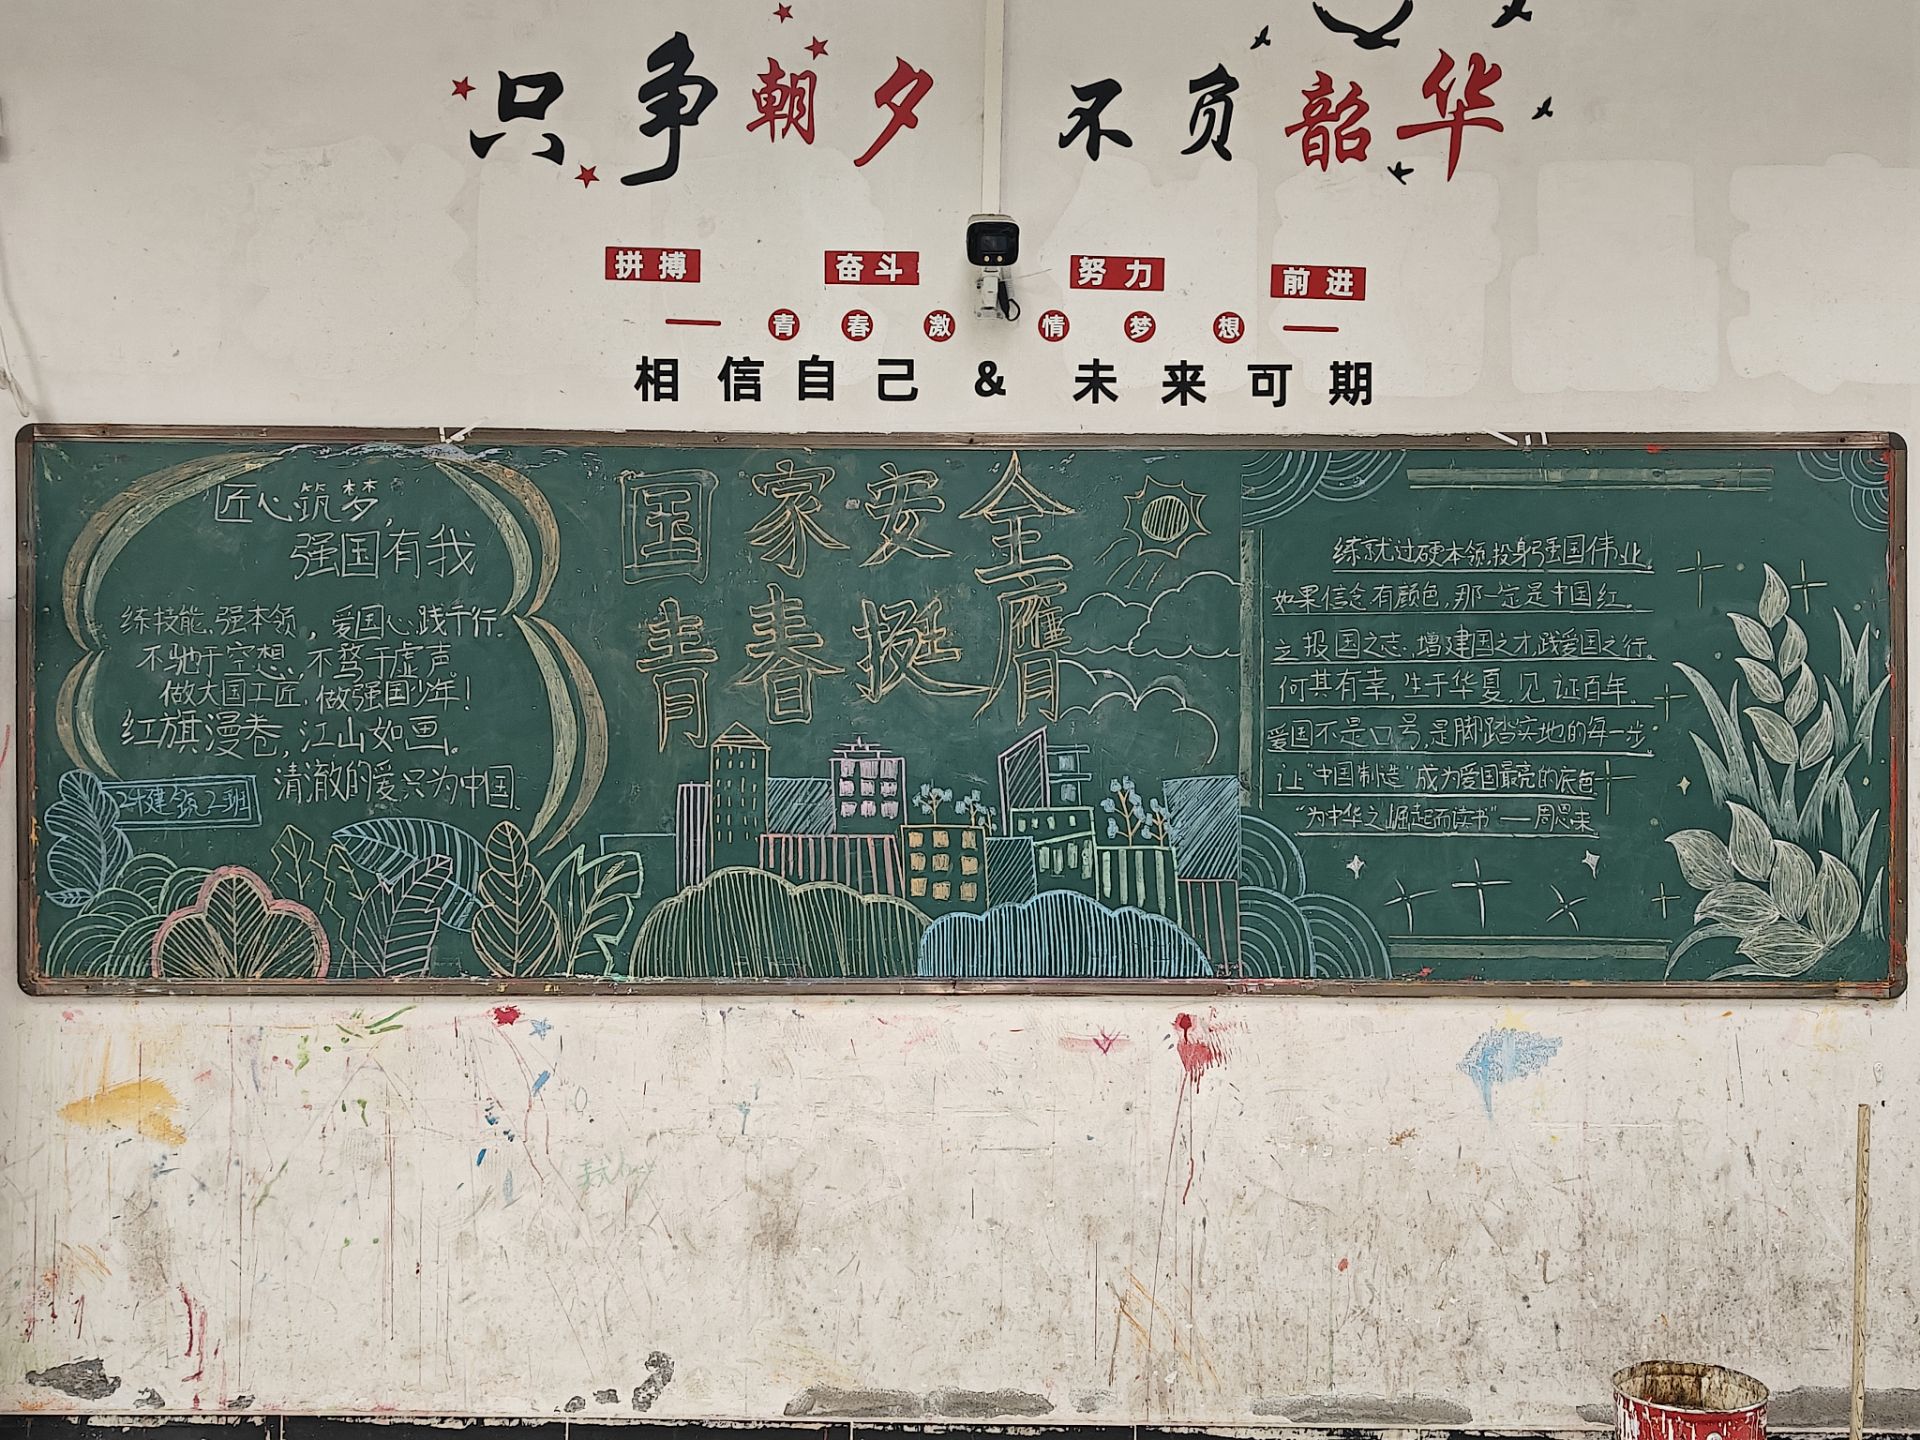 只争朝夕 不负韶华
拼搏 奋斗 努力 前进
青春激情梦想
相信自己 & 未来可期
匠心筑梦,
强国有我
练技能,强本领,爱国心,践于行.
不驰于空想,不骛于虚声。
做大国工匠,做强国少年!
红旗漫卷,江山如画.
清澈的爱只为中国.
24建筑2班
国家安全
青春挺膺
练就过硬本领,投身强国伟业.
如果信念有颜色,那一定是中国红.
立报国之志,增建国之才,践爱国之行.
何其有幸,生于华夏,见证百年.
爱国不是口号,是脚踏实地的每一步.
让“中国制造”成为爱国最亮的底色
“为中华之崛起而读书”—周恩来